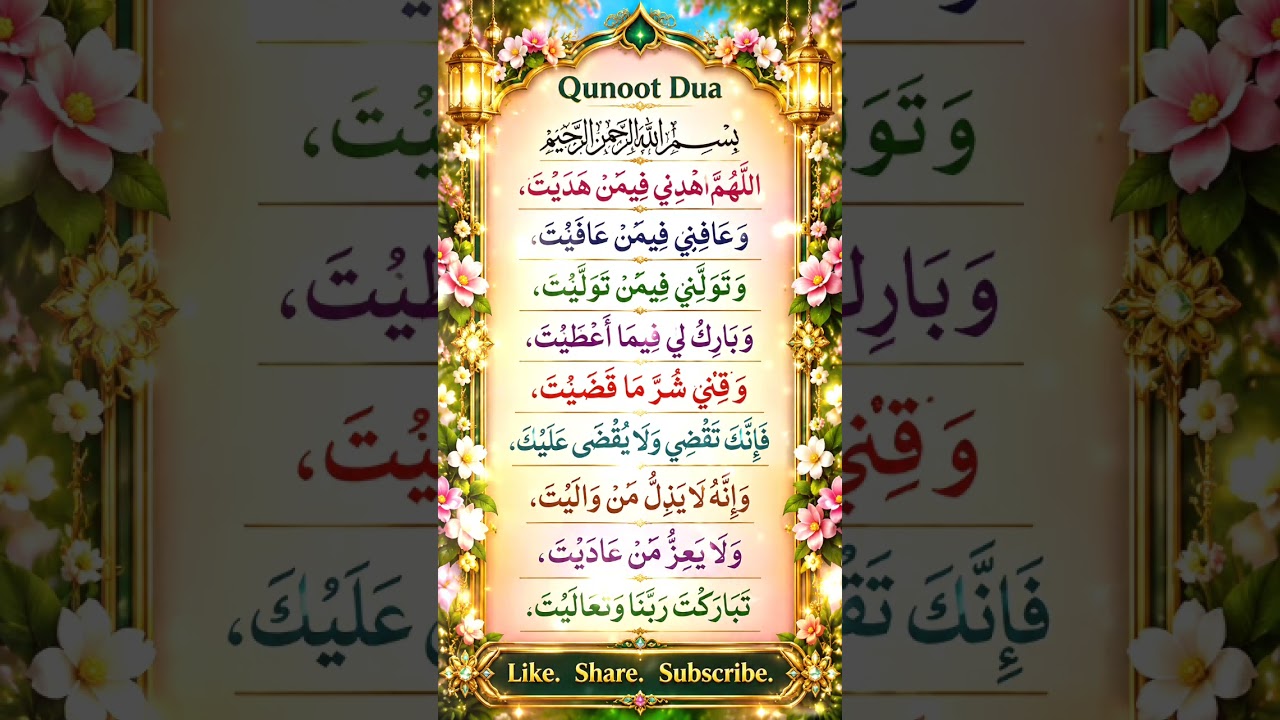 Qunoot Dua
بِسْمِ اللهِ الرَّحْمٰنِ الرَّحِيْمِ
اللَّهُمَّ اهْدِنِي فِيمَنْ هَدَيْتَ،
وَعَافِنِي فِيمَنْ عَافَيْتَ،
وَتَوَلَّنِي فِيمَنْ تَوَلَّيْتَ،
وَبَارِكْ لِي فِيمَا أَعْطَيْتَ،
وَقِنْي شُرَّ مَا قَضَيْتَ،
فَإِنَّكَ تَقْضِي وَلَا يُقْضَى عَلَيْكَ،
وَإِنَّهُ لَا يَذِلُّ مَنْ وَالَيْتَ،
وَلَا يَعِزُّ مَنْ عَادَيْتَ،
تَبَارَكْتَ رَبَّنَا وَتَعَالَيْتَ،
Like. Share. Subscribe.